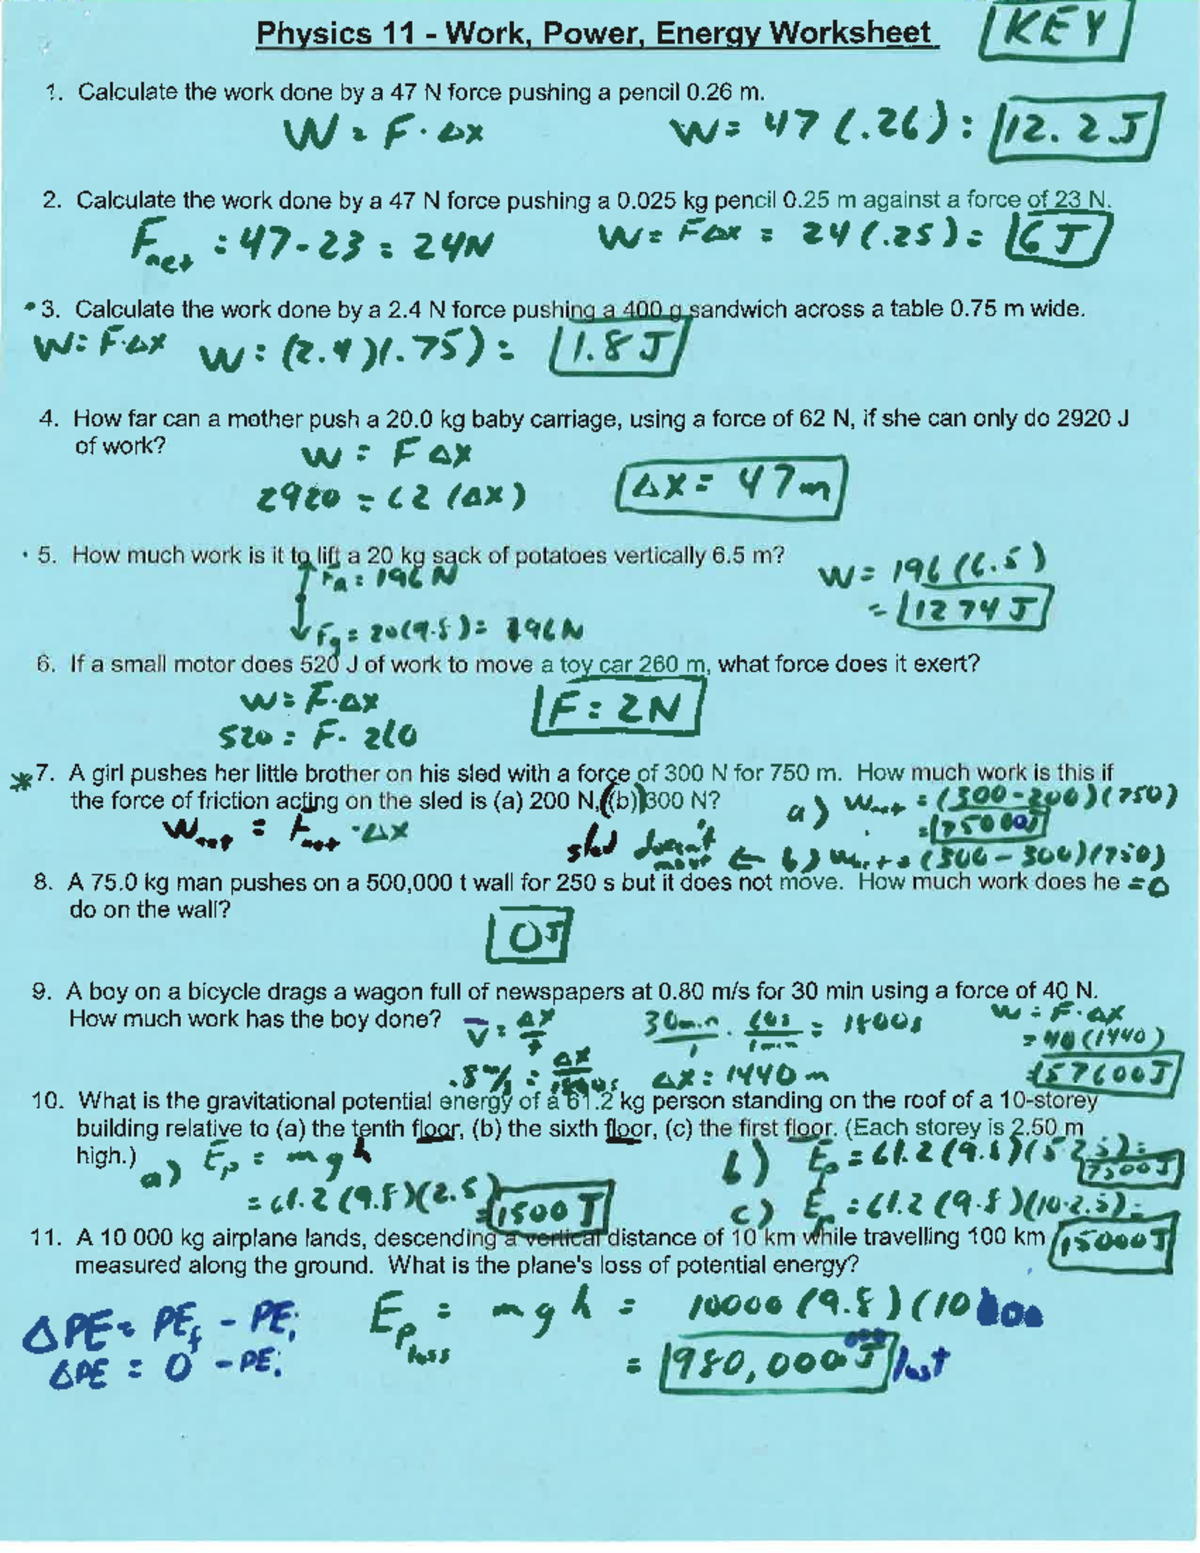 Physics 11 - Work, Power, Energy Worksheet
KEY
1. Calculate the work done by a 47 N force pushing a pencil 0.26 m.
W = F · Δx W = 47 (.26) = 12.2 J
2. Calculate the work done by a 47 N force pushing a 0.025 kg pencil 0.25 m against a force of 23 N.
Fnet = 47 - 23 = 24N W = FΔx = 24(.25) = 6 J
3. Calculate the work done by a 2.4 N force pushing a 400 g sandwich across a table 0.75 m wide.
W = F·Δx W = (2.4)(.75) = 1.8 J
4. How far can a mother push a 20.0 kg baby carriage, using a force of 62 N, if she can only do 2920 J
of work?
W = F Δx
2920 = 62 (Δx) Δx = 47m
5. How much work is it to lift a 20 kg sack of potatoes vertically 6.5 m?
Fa = 196 N W = 196 (6.5)
= 1274 J
Fg = 20(9.8) = 196N
6. If a small motor does 520 J of work to move a toy car 260 m, what force does it exert?
W = F·Δx F = 2N
520 = F· 260
* 7. A girl pushes her little brother on his sled with a force of 300 N for 750 m. How much work is this if
the force of friction acting on the sled is (a) 200 N, (b) 300 N?
a) Wnet = (300-200)(750)
= 75000J
Wnet = Fnet · Δx
sled doesn't move ← b) Wnet = (300 - 300)(750)
= 0
8. A 75.0 kg man pushes on a 500,000 t wall for 250 s but it does not move. How much work does he
do on the wall?
0J
9. A boy on a bicycle drags a wagon full of newspapers at 0.80 m/s for 30 min using a force of 40 N.
How much work has the boy done?
v = Δx/t 30min/1 · 60s/1min = 1800s W = F·Δx
= 40(1440)
.8 m/s = Δx/1800s Δx = 1440 m = 57600J
10. What is the gravitational potential energy of a 61.2 kg person standing on the roof of a 10-storey
building relative to (a) the tenth floor, (b) the sixth floor, (c) the first floor. (Each storey is 2.50 m
high.)
a) Ep = mgh
= 61.2(9.8)(2.5)
= 1500 J
b) Ep = 61.2(9.8)(5·2.5) =
7500J
c) Ep = 61.2(9.8)(10·2.5) =
15000J
11. A 10 000 kg airplane lands, descending a vertical distance of 10 km while travelling 100 km
measured along the ground. What is the plane's loss of potential energy?
ΔPE = PEf - PEi
ΔPE = 0 - PEi
Ep loss = mgh = 10000(9.8)(10000
= 980,000 000 J lost